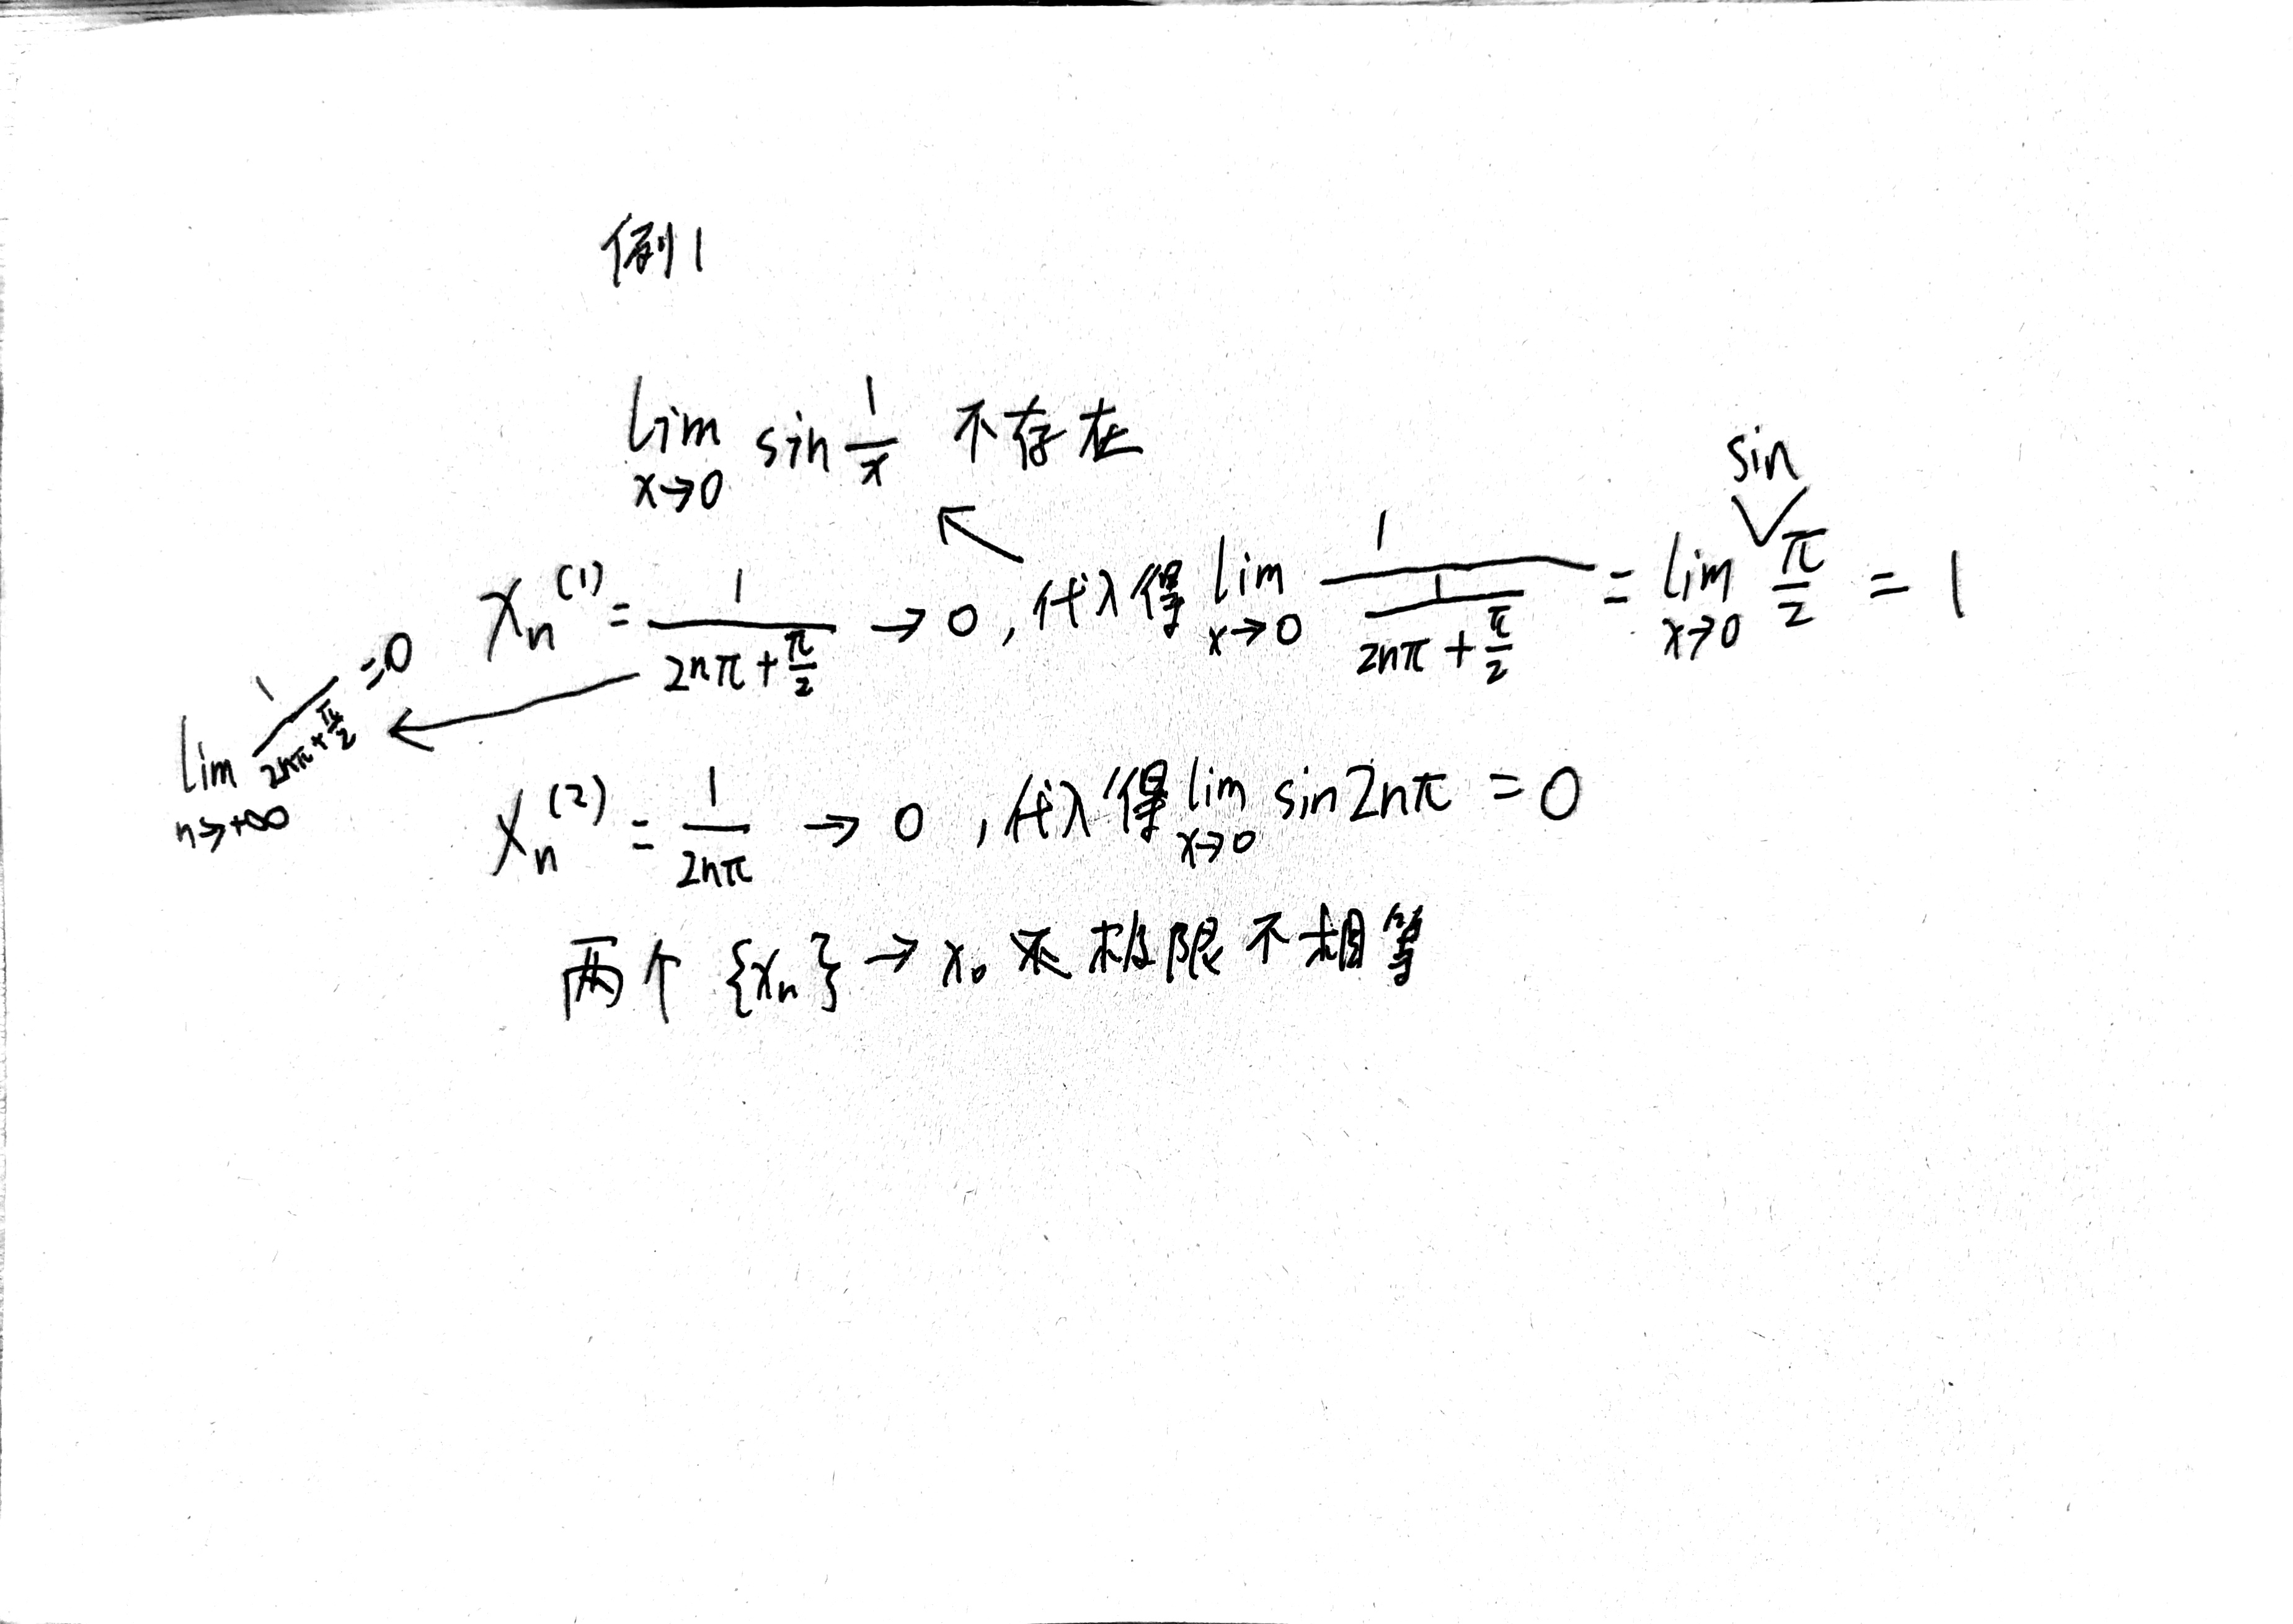 例1
lim_{x→0} sin 1/x 不存在
x_n^{(1)} = 1/(2nπ + π/2) → 0 , 代入得 lim_{x→0} 1/(1/(2nπ + π/2)) = lim_{x→0} sin π/2 = 1
lim_{n→+∞} 1/(2nπ + π/2) = 0
x_n^{(2)} = 1/(2nπ) → 0 , 代入得 lim_{x→0} sin2nπ = 0
两个 {x_n} → x_0 极限不相等